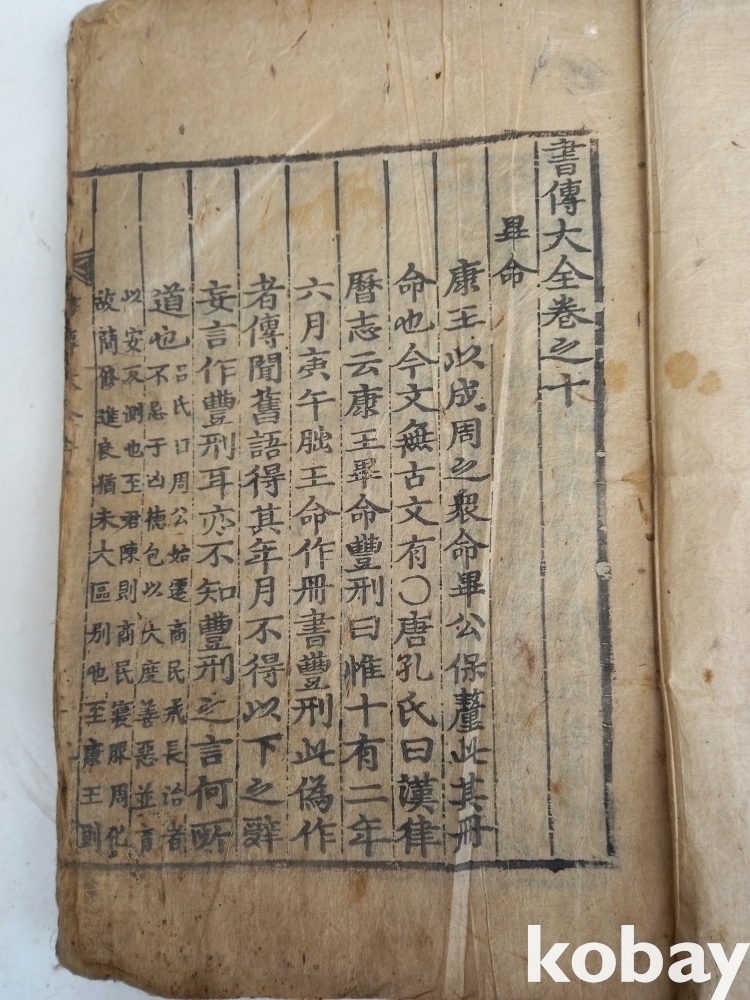 書傳大全卷之十
畢命
康王以成周之衆命畢公保釐此其冊
命也今文無古文有○唐孔氏曰漢律
曆志云康王畢命豐刑曰惟十有二年
六月庚午朏王命作冊書豐刑此偽作
者傳聞舊語得其年月不得以下之辭
妄言作豐刑耳亦不知豐刑之言何所
道也
呂氏曰周公始遷商民戒長治者
不忌于凶德包以大度善惡並育
以安反測也至君陳則商民寖服周化
故簡修進良猶未大區別也至康王則
書傳大全
kobay